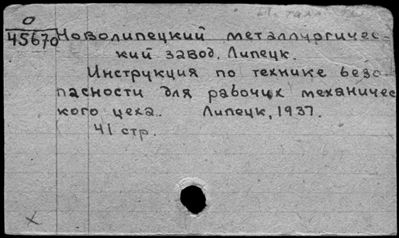 О
45670
Новолипецкий металлургичес-
кий завод. Липецк.
Инструкция по технике безо-
пасности для рабочих механичес-
кого цеха. Липецк, 1937.
41 стр.
х